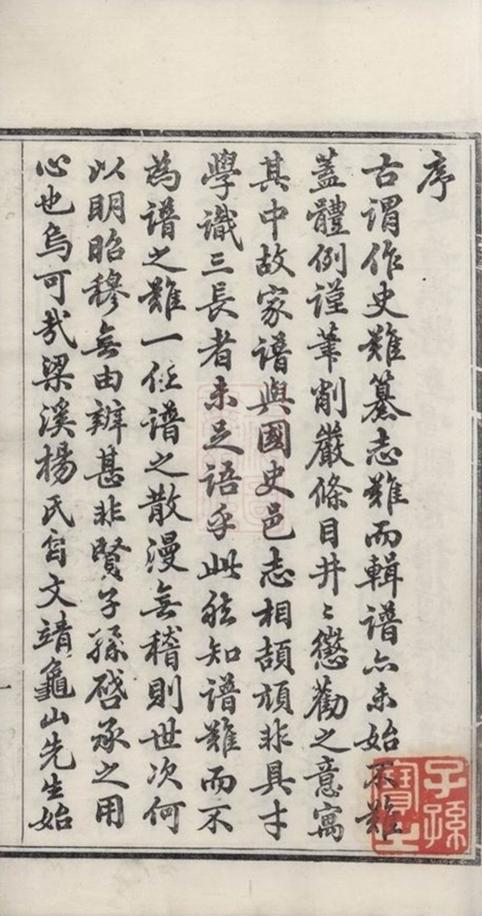 序
古謂作史難纂志難而輯譜亦未始不難
蓋體例謹筆削嚴條目井〻懲勸之意寓
其中故家譜與國史邑志相頡頏非具才
學識三長者未足語乎此然知譜難而不
為譜之難一任譜之散漫無稽則世次何
以明昭穆無由辨甚非賢子孫啓承之用
心也烏可哉梁溪楊氏自文靖龜山先生始
子孫
寶之